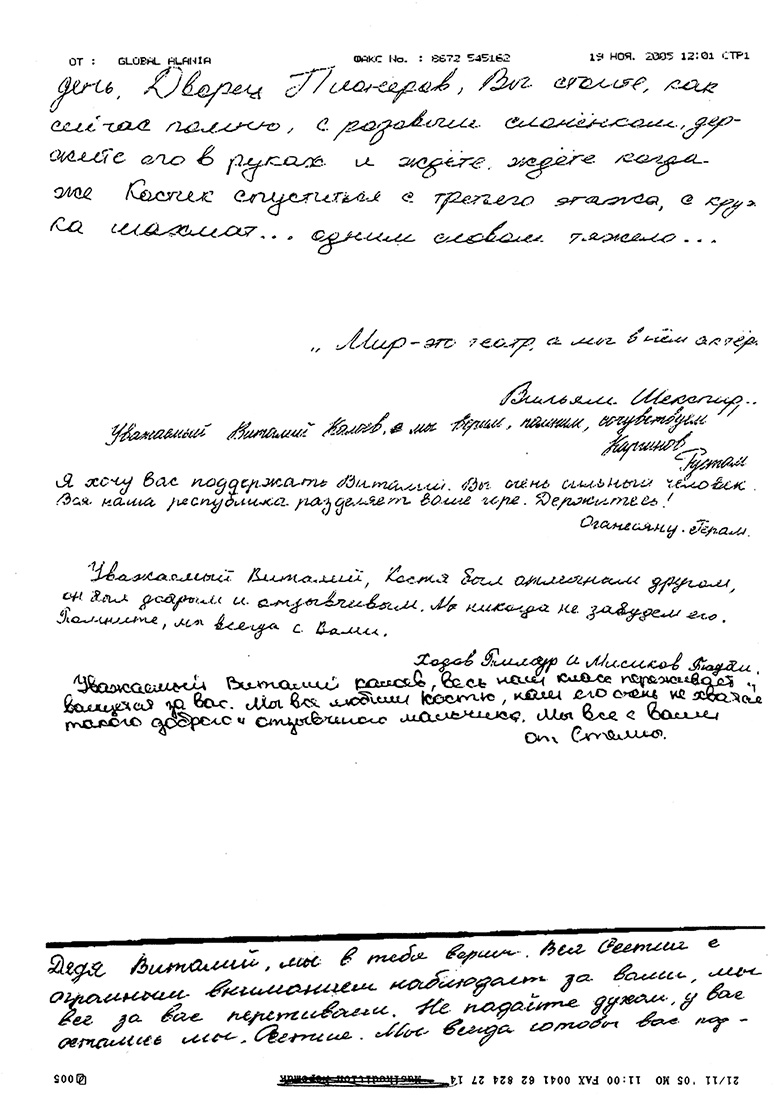 ОТ : GLOBAL ALANIA ФАКС No. : 8672 545162 19 НОЯ. 2005 12:01 СТР1
день, Дворец Пионеров, Вы стоите, как
сейчас помню, с розовым слонёнком, дер-
жите его в руках и ждёте, ждёте когда
же Костик спуститься с третего этажа, с круж
ка шахмат... одним словом тяжело...
„Мир-это театр, а мы в нём актёр.
Вильям Шекспир„
Уважаемый Виталий Калоев, а мы верим, помним, сочувствуем
Каргинов
Рустам
Я хочу вас поддержать Виталий. Вы очень сильный человек.
Вся наша республика разделяет ваше горе. Держитесь!
Уважаемый Виталий, Костя был отличным другом,
он был добрым и отзывчивым. Мы никогда не забудем его.
Помните, мы всегда с Вами.
Ходов и Мисиков
Уважаемый Виталий весь наш класс переживает и
валнуется за вас. Мы все любили костю, нам его очень не хватае
такого доброго и отзывчиого мальчика. Мы все с вами
от
Дядя Виталий, мы в тебя верим. Вся Осетия с
огромным вниманием наблюдает за вами, мы
все за вас переживаем. Не падайте духом, у вас
остались мы, Осетия. Мы всегда готовы вас под-
21/11 '05 MO 11:00 FAX 0041 62 824 27 14
005